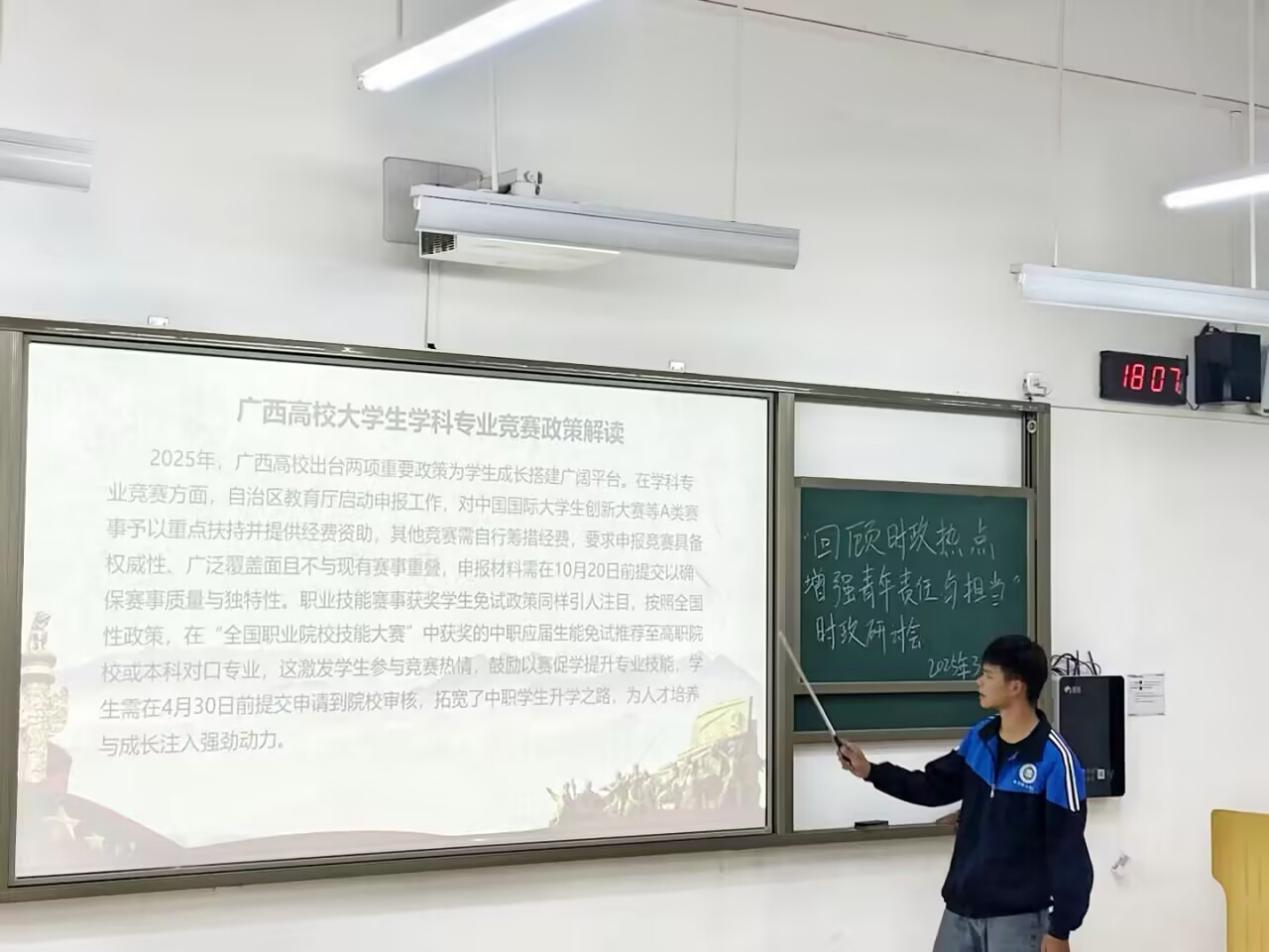 广西高校大学生学科专业竞赛政策解读
2025年，广西高校出台两项重要政策为学生成长搭建广阔平台。在学科专
业竞赛方面，自治区教育厅启动申报工作，对中国国际大学生创新大赛等A类赛
事予以重点扶持并提供经费资助，其他竞赛需自行筹措经费，要求申报竞赛具备
权威性、广泛覆盖面且不与现有赛事重叠，申报材料需在10月20日前提交以确
保赛事质量与独特性。职业技能赛事获奖学生免试政策同样引人注目，按照全国
性政策，在“全国职业院校技能大赛”中获奖的中职应届生能免试推荐至高职院
校或本科对口专业，这激发学生参与竞赛热情，鼓励以赛促学提升专业技能，学
生需在4月30日前提交申请到院校审核，拓宽了中职学生升学之路，为人才培养
与成长注入强劲动力。
“回顾时政热点
增强青年责任与担当”
时政研讨会
2025年3
18 07